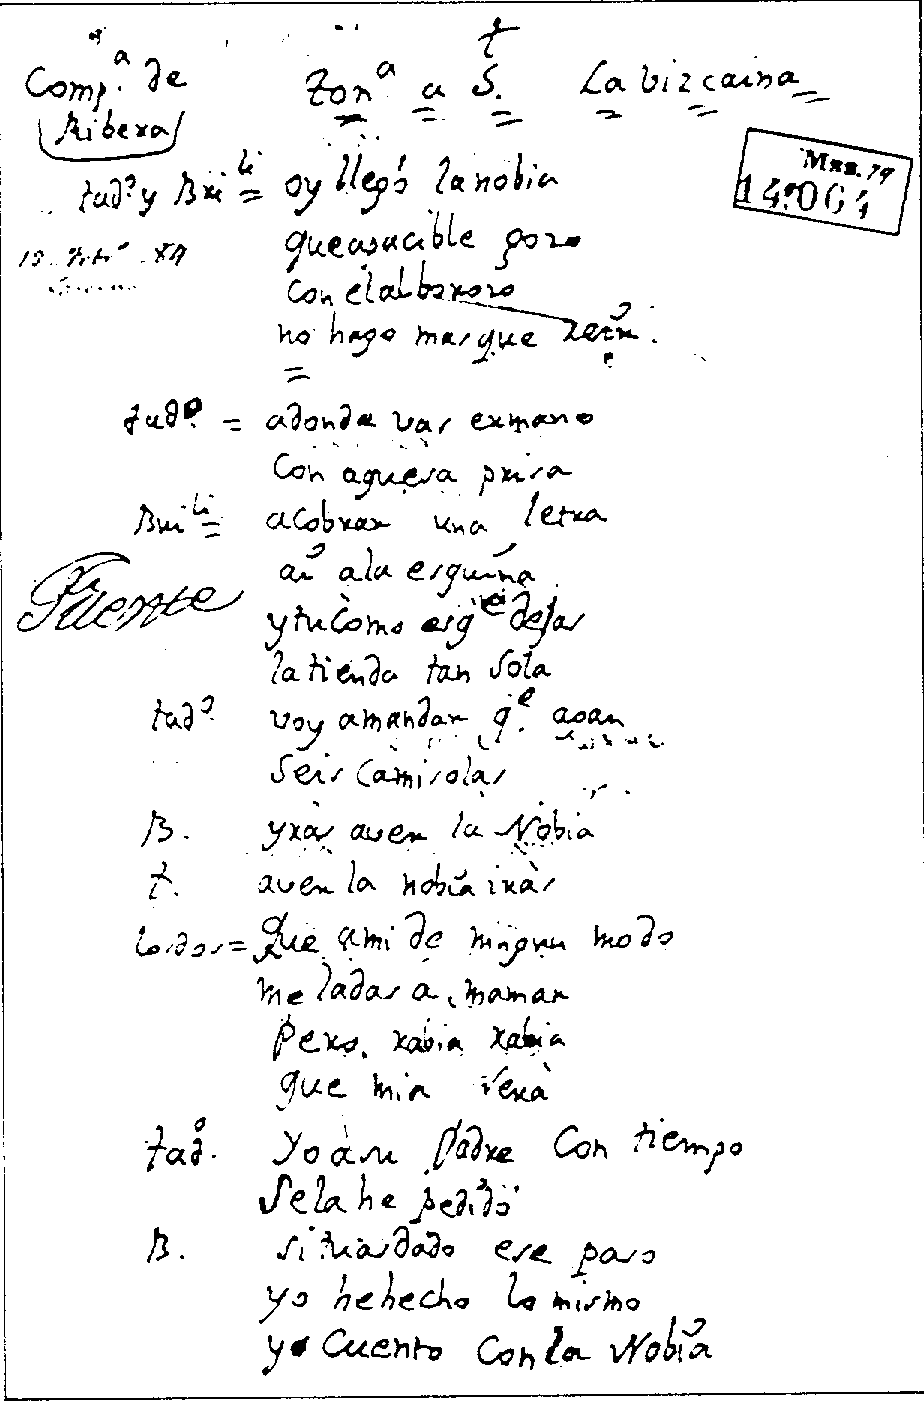 Comp.ª de
Ribera
Ton.ª a S. La vizcaina
Mss. 14.064
tad.º y Bri.li = oy llego la nobia
que apacible gozo
con el alborozo
no hago mas que
tad.º = adonde vas ermano
Con aquesa prisa
Bri.li = a cobrar una letra
ai a la esquina
Fuente
y tu como es q.e dejas
la tienda tan sola
tad.º voy a mandar q.e agan
seis camisolas
B. yras a ver la Nobia
t. a ver la nobia iras
los dos = Que a mi de ningun modo
me la das a mamar
Pero, rabia rabia
que mia sera
tad.º Yo a su Padre Con tiempo
se la he pedido
B. si tu as dado ese paso
yo he hecho lo mismo
yo Cuento Con la Nobia